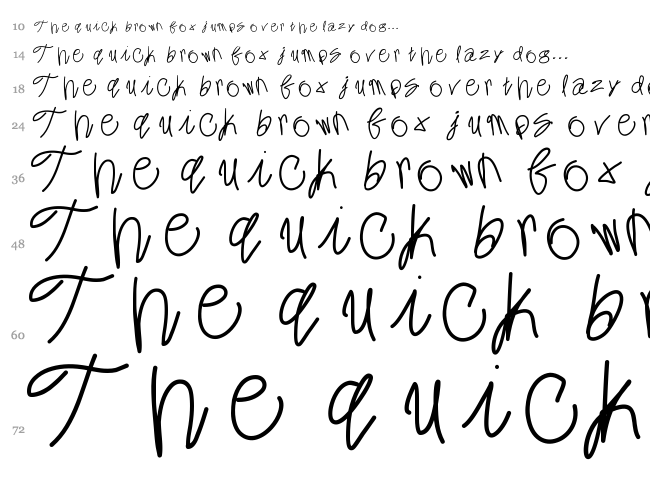 10 The quick brown fox jumps over the lazy dog...
14 The quick brown fox jumps over the lazy dog...
18 The quick brown fox jumps over the lazy do
24 The quick brown fox jumps over
36 The quick brown fox
48 The quick brown
60 The quick b
72 The quick